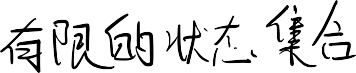 有限的状态集合